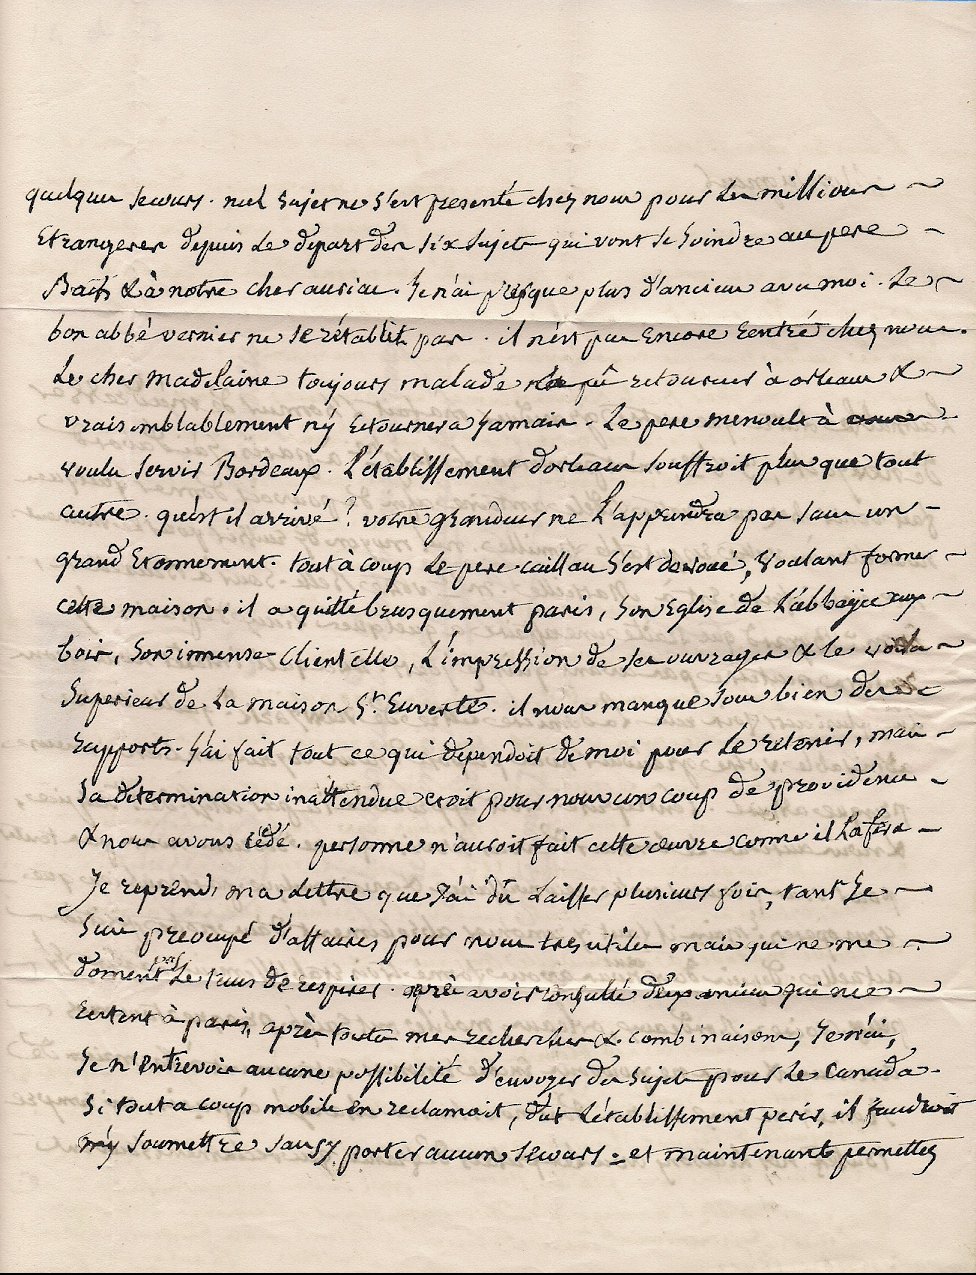 quelques secours. nul sujet ne s'est presenté chez nous pour les missions
Etrangeres depuis le depart des six sujets qui vont se joindre au pere
& à notre cher auriac. Je n'ai presque plus d'anciens avec moi. Le
bon abbé vernier ne se rétablit pas. il n'est pas encore rentré chez nous.
Le cher madelaine toujours malade n'a pû retourner à orleans &
vraisemblablement n'y retournera jamais. Le pere menoult à
voulu servir Bordeaux. L'établissement d'orleans souffroit plus que tout
autre. qu'est il arrivé? votre grandeur ne l'apprendra pas sans un
grand Etonnement. tout à coup le pere caillau s'est devoué, voulant former
cette maison. il a quitté brusquement paris, son Eglise de L'abbaÿe aux
bois, son immense clientelle, L'impression de ses ouvrages & le voila
Superieur de la maison St. Euverte. il nous manque sous bien des
rapports. j'ai fait tout ce qui dependoit de moi pour le retenir, mais
sa determination inattendue etoit pour nous un coup de providence
& nous avons cédé. personne n'auroit fait cette œuvre comme il la fera
Je reprends ma lettre que j'ai dû laisser plusieurs fois, tant je
suis preocupé d'affaires pour nous tres utiles mais qui ne me
donnent pas le tems de respirer. après avoir consulté deux anciens qui me
restent à paris, après toutes mes recherches & combinaisons, je n'ai,
je n'entrevois aucune possibilité d'envoyer des sujets pour le canada.
Si tout a coup mobile en reclamoit, dût l'établissement perir, il faudroit
m'y soumettre sans y porter aucun secours. et maintenant permettez